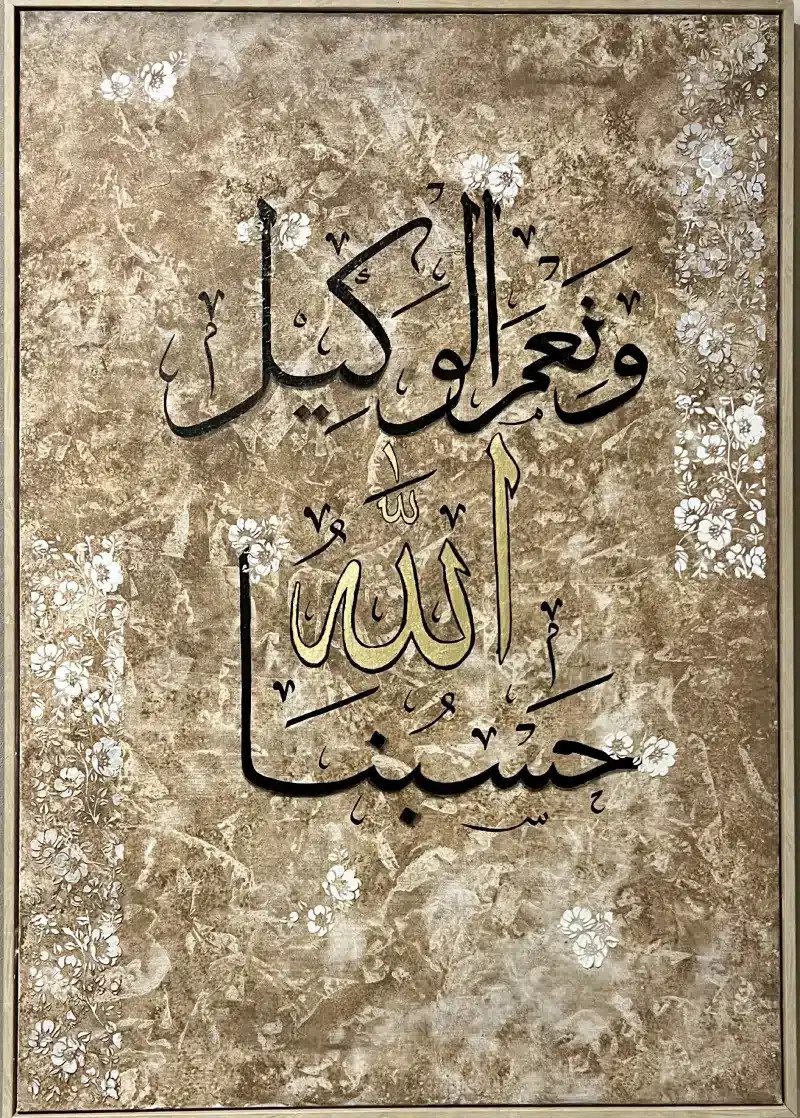 حسبنا
الله
ونعم الوكيل